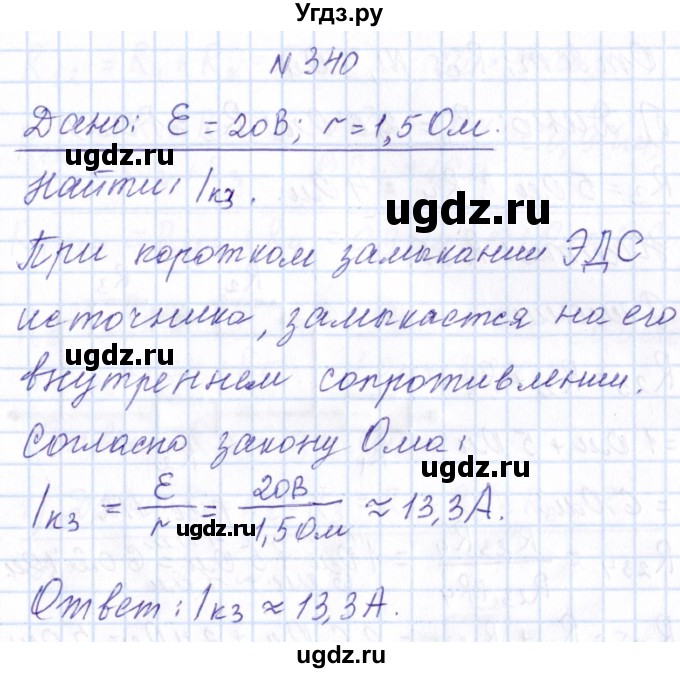 Угдз.ру
N 340
Дано: Ɛ = 20В; r = 1,5 Ом.
ugdz.ru
Найти: Iкз.
ugdz.ru
При коротком замыкании ЭДС
источника, замыкается на его
ugdz.ru
внутреннем сопротивлении.
Согласно закону Ома:
ugdz.ru
Iкз = Ɛ/r = 20В/1,5Ом ≈ 13,3А.
ugdz.ru
Ответ: Iкз ≈ 13,3А.
ugdz.ru